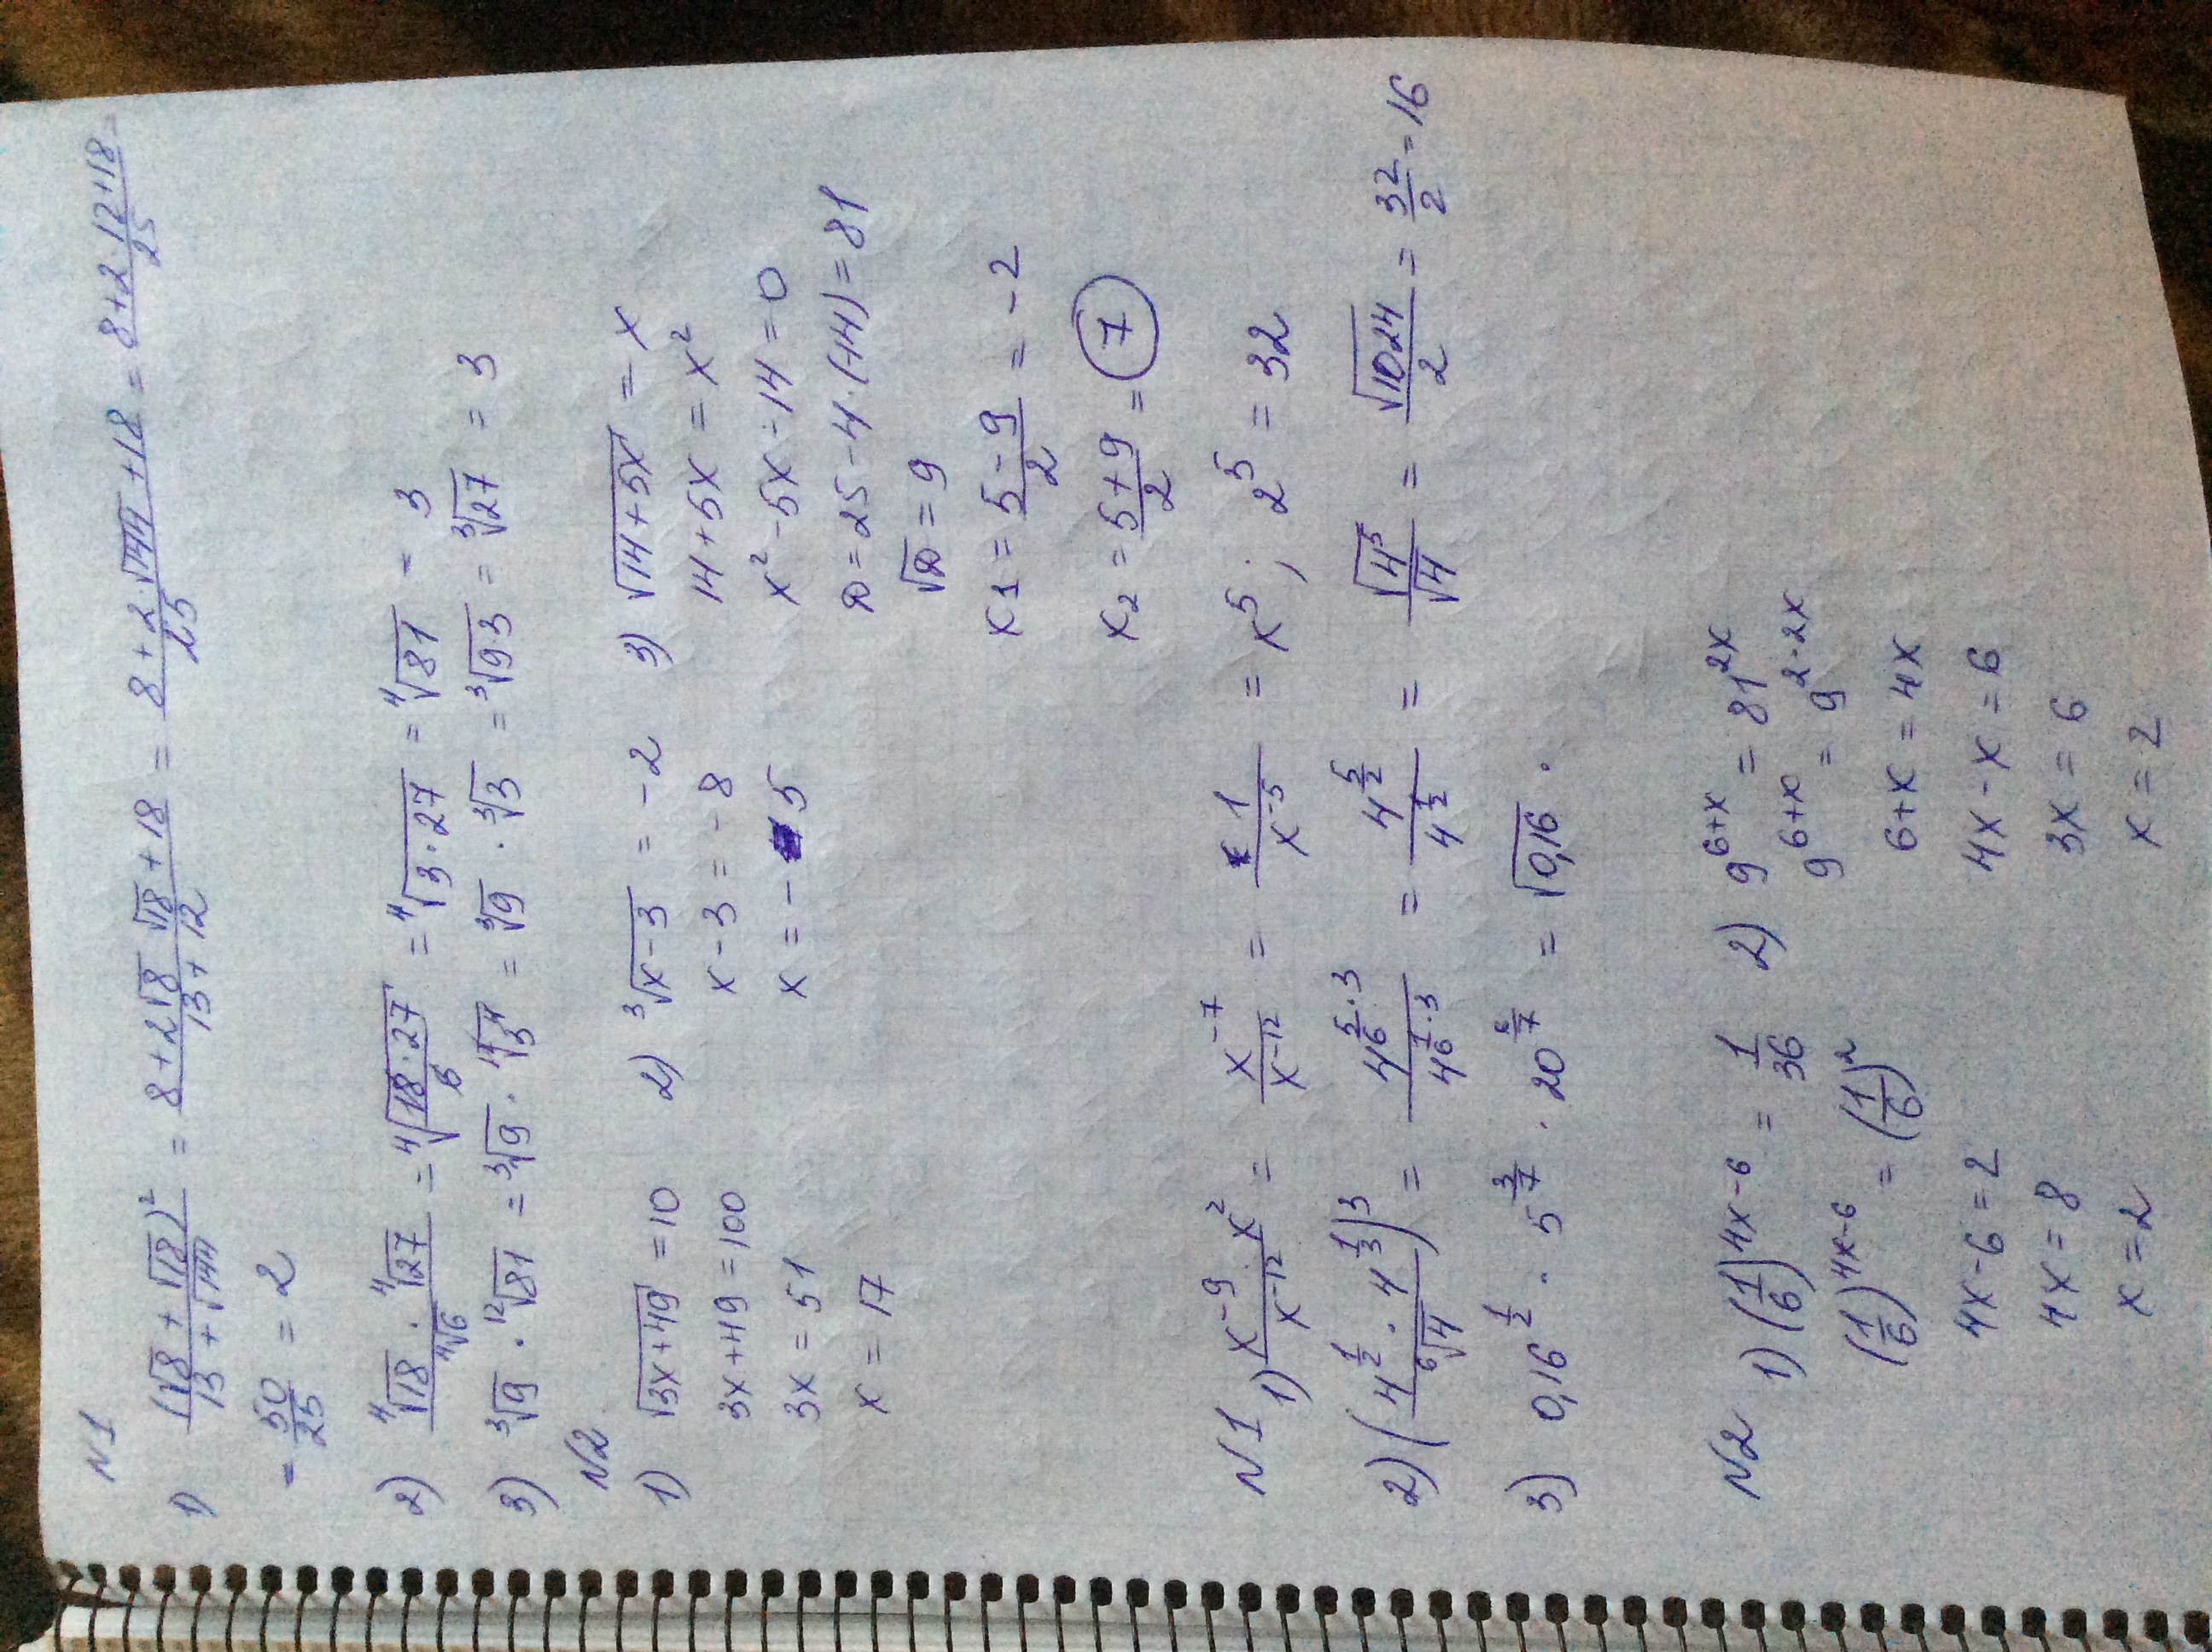 N1
1) (√8 + √18)² / (13 + √144) = (8 + 2√8 √18 + 18) / (13 + 12) = (8 + 2√144 + 18) / 25 = (8 + 2 12 + 18) / 25 =
= 50/25 = 2
2) ⁴√18 · ⁴√27 / ⁴√6 = ⁴√(18 · 27 / 6) = ⁴√(3 · 27) = ⁴√81 = 3
3) ³√9 · ¹²√81 = ³√9 · ¹²√3⁴ = ³√9 · ³√3 = ³√(9·3) = ³√27 = 3
N2
1) √(3x + 49) = 10
3x + 49 = 100
3x = 51
x = 17
2) ³√(x - 3) = -2
x - 3 = -8
x = -5
3) √(14 + 5x) = x
14 + 5x = x²
x² - 5x - 14 = 0
D = 25 - 4 · (-14) = 81
√D = 9
x1 = (5 - 9)/2 = -2
x₂ = (5 + 9)/2 = 7
N1 1) x⁻⁹ x² / x⁻¹² = x⁻⁷ / x⁻¹² = 1 / x⁻⁵ = x⁵; 2⁵ = 32
2) (4^(1/2) · 4^(1/3) / ⁶√4)³ = 4^(5/6 · 3) / 4^(1/6 · 3) = 4^(5/2) / 4^(1/2) = √4⁵ / √4 = √1024 / 2 = 32/2 = 16
3) 0,16^(1/2) · 5^(3/7) · 20 = √0,16 ·
N2 1) (1/6)^(4x - 6) = 1/36
(1/6)^(4x-6) = (1/6)²
4x - 6 = 2
4x = 8
x = 2
2) 9^(6+x) = 81^(2x)
9^(6+x) = 9^(2·2x)
6 + x = 4x
4x - x = 6
3x = 6
x = 2